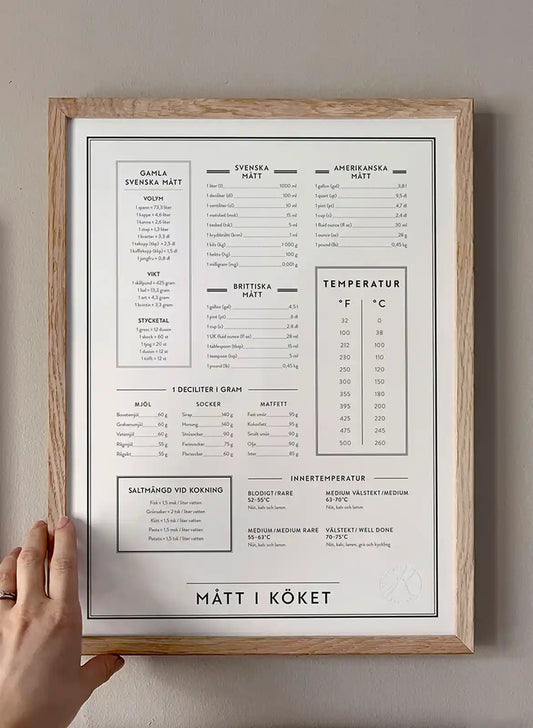 GAMLA
SVENSKA MÅTT
VOLYM
1 spann = 73,3 liter
1 kappe = 4,6 liter
1 kanna = 2,6 liter
1 stop = 1,3 liter
1 kvarter = 3,3 dl
1 tekopp (tkp) = 2,5 dl
1 kaffekopp (kkp) = 1,5 dl
1 jungfru = 0,8 dl
VIKT
1 skålpund = 425 gram
1 lod = 13,3 gram
1 ort = 4,3 gram
1 kvintin = 3,3 gram
STYCKETAL
1 gross = 12 dussin
1 skock = 60 st
1 tjog = 20 st
1 dussin = 12 st
1 tolft = 12 st
SVENSKA
MÅTT
1 liter (l) 1000 ml
1 deciliter (dl) 100 ml
1 centiliter (cl) 10 ml
1 matsked (msk) 15 ml
1 tesked (tsk) 5 ml
1 kryddmått (krm) 1 ml
1 kilo (kg) 1 000 g
1 hekto (hg) 100 g
1 milligram (mg) 0,001 g
BRITTISKA
MÅTT
1 gallon (gal) 4,5 l
1 pint (pt) 6 dl
1 cup (c) 2,8 dl
1 UK fluid ounce (fl oz) 28 ml
1 tablespoon (tbsp) 15 ml
1 teaspoon (tsp) 5 ml
1 pound (lb) 0,45 kg
AMERIKANSKA
MÅTT
1 gallon (gal) 3,8 l
1 quart (qt) 9,5 dl
1 pint (pt) 4,7 dl
1 cup (c) 2,4 dl
1 fluid ounce (fl oz) 30 ml
1 ounce (oz) 28 g
1 pound (lb) 0,45 kg
TEMPERATUR
°F °C
32 0
100 38
212 100
230 110
250 120
300 150
355 180
395 200
425 220
475 245
500 260
1 DECILITER I GRAM
MJÖL
Bovetemjöl 60 g
Grahamsmjöl 60 g
Vetemjöl 60 g
Rågmjöl 55 g
Rågsikt 55 g
SOCKER
Sirap 140 g
Honung 140 g
Strösocker 90 g
Farinsocker 75 g
Florsocker 60 g
MATFETT
Fast smör 95 g
Kokosfett 95 g
Smält smör 90 g
Olja 90 g
Ister 85 g
SALTMÄNGD VID KOKNING
Fisk = 1,5 msk / liter vatten
Grönsaker = 2 tsk / liter vatten
Kött = 1,5 tsk / liter vatten
Pasta = 1,5 tsk / liter vatten
Potatis = 1,5 tsk / liter vatten
INNERTEMPERATUR
BLODIGT/RARE
52-55°C
Nöt, kalv och lamm
MEDIUM VÄLSTEKT/MEDIUM
63-70°C
Nöt, kalv och lamm
MEDIUM/MEDIUM RARE
55-63°C
Nöt, kalv och lamm
VÄLSTEKT/ WELL DONE
70-75°C
Nöt, kalv, lamm, gris och kyckling
MÅTT I KÖKET